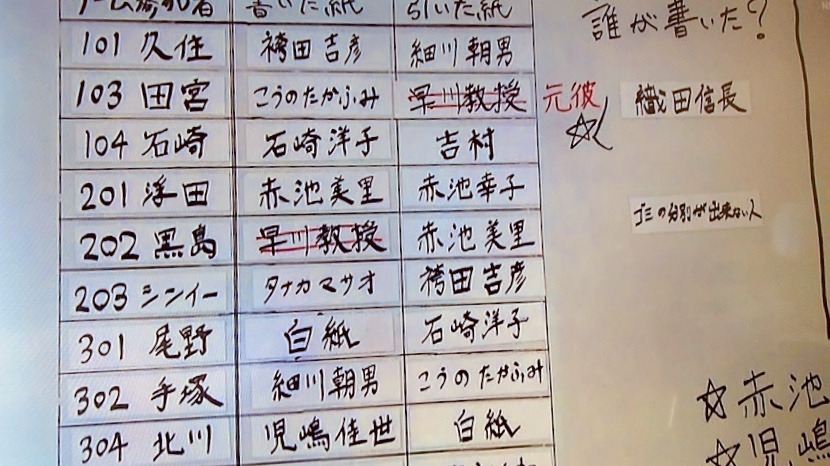 ゲーム参加者 書いた紙 引いた紙
誰が書いた?
101 久住 袴田吉彦 細川朝男
103 田宮 こうのたかふみ 早川教授 元彼 織田信長
104 石崎 石崎洋子 吉村
201 浮田 赤池美里 赤池幸子
ゴミの分別が出来ない人
202 黒島 早川教授 赤池美里
203 シンイー タナカマサオ 袴田吉彦
301 尾野 白紙 石崎洋子
302 手塚 細川朝男 こうのたかふみ
☆赤池
304 北川 児嶋佳世 白紙
☆児嶋